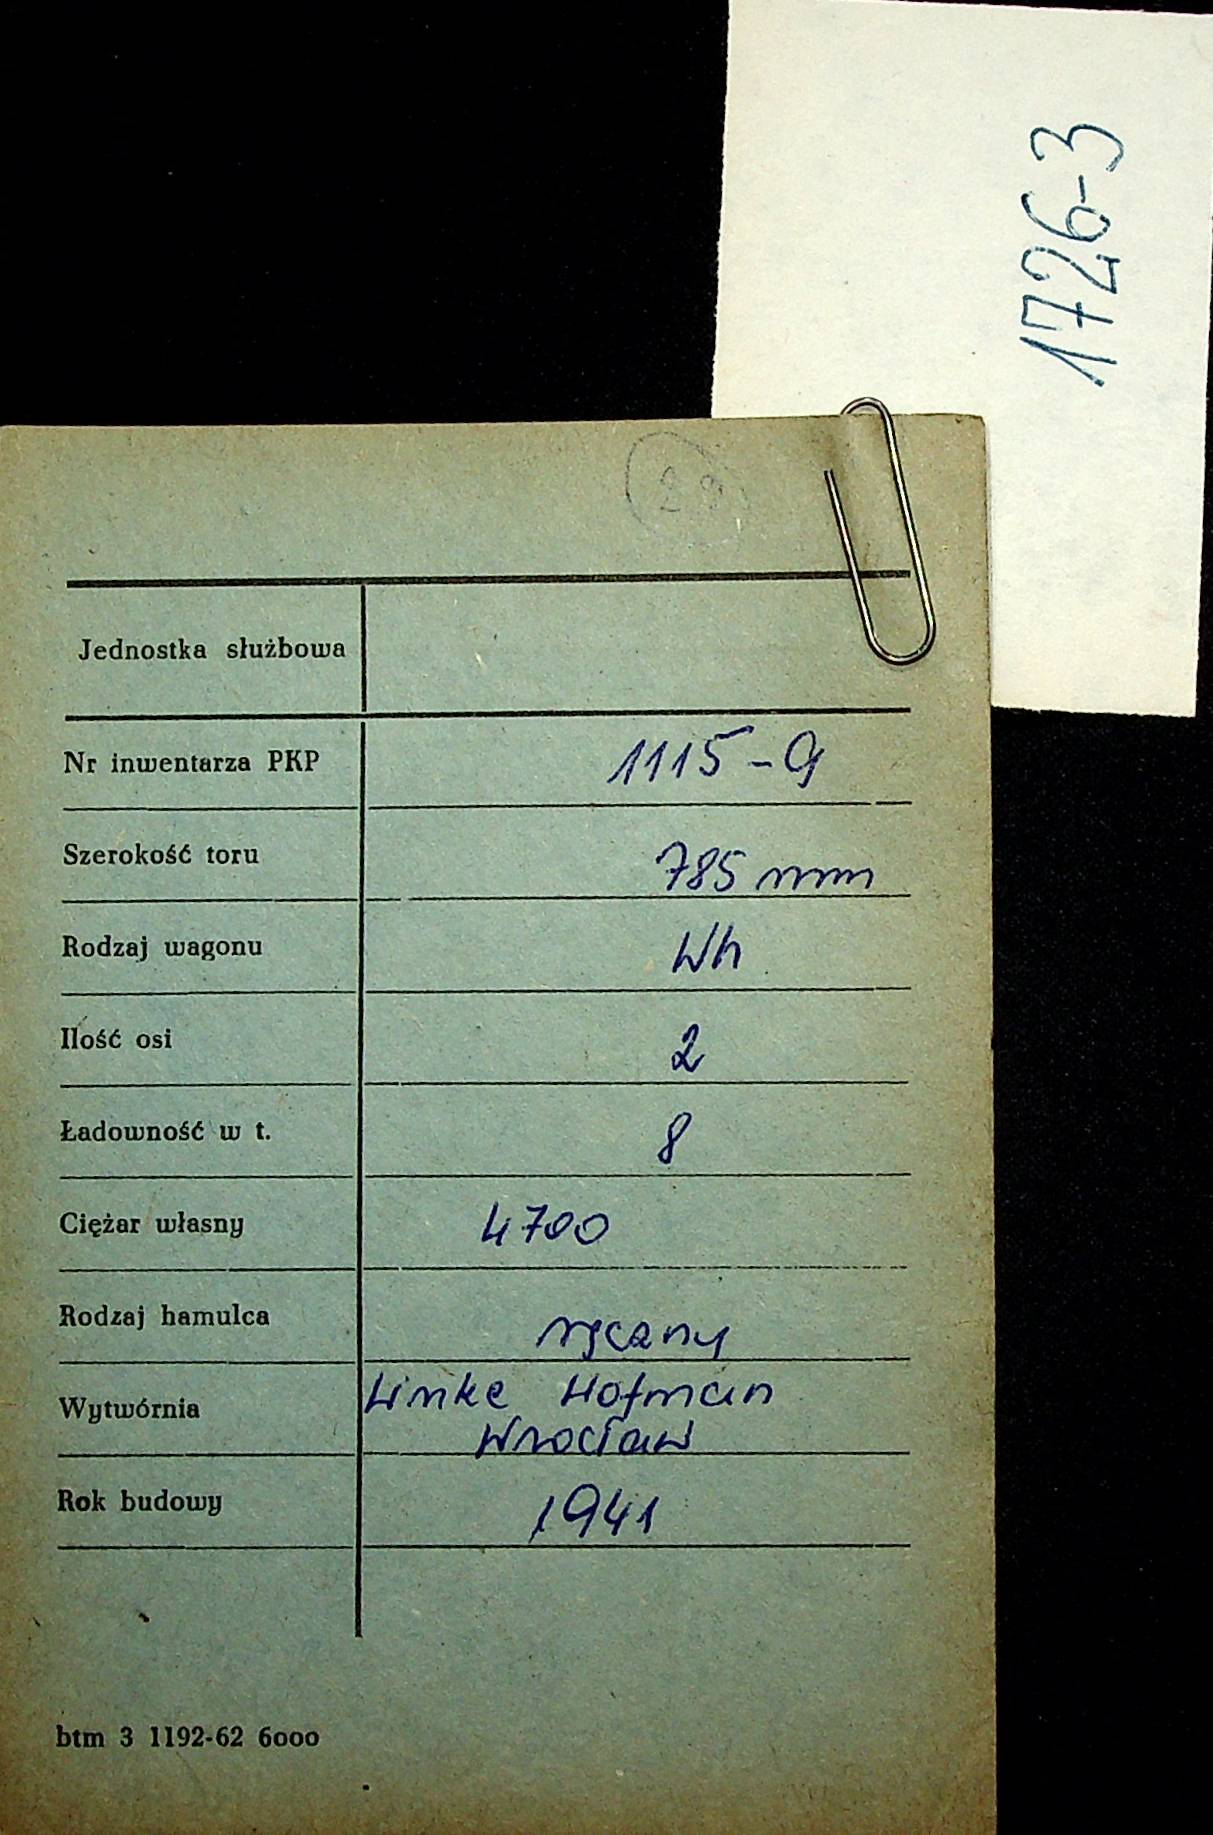 1726-3
29
Jednostka służbowa
Nr inwentarza PKP 1115-9
Szerokość toru 785 mm
Rodzaj wagonu Wh
Ilość osi 2
Ładowność w t. 8
Ciężar własny 4700
Rodzaj hamulca ręczny
Wytwórnia Linke Hofman
Wrocław
Rok budowy 1941
btm 3 1192-62 6000